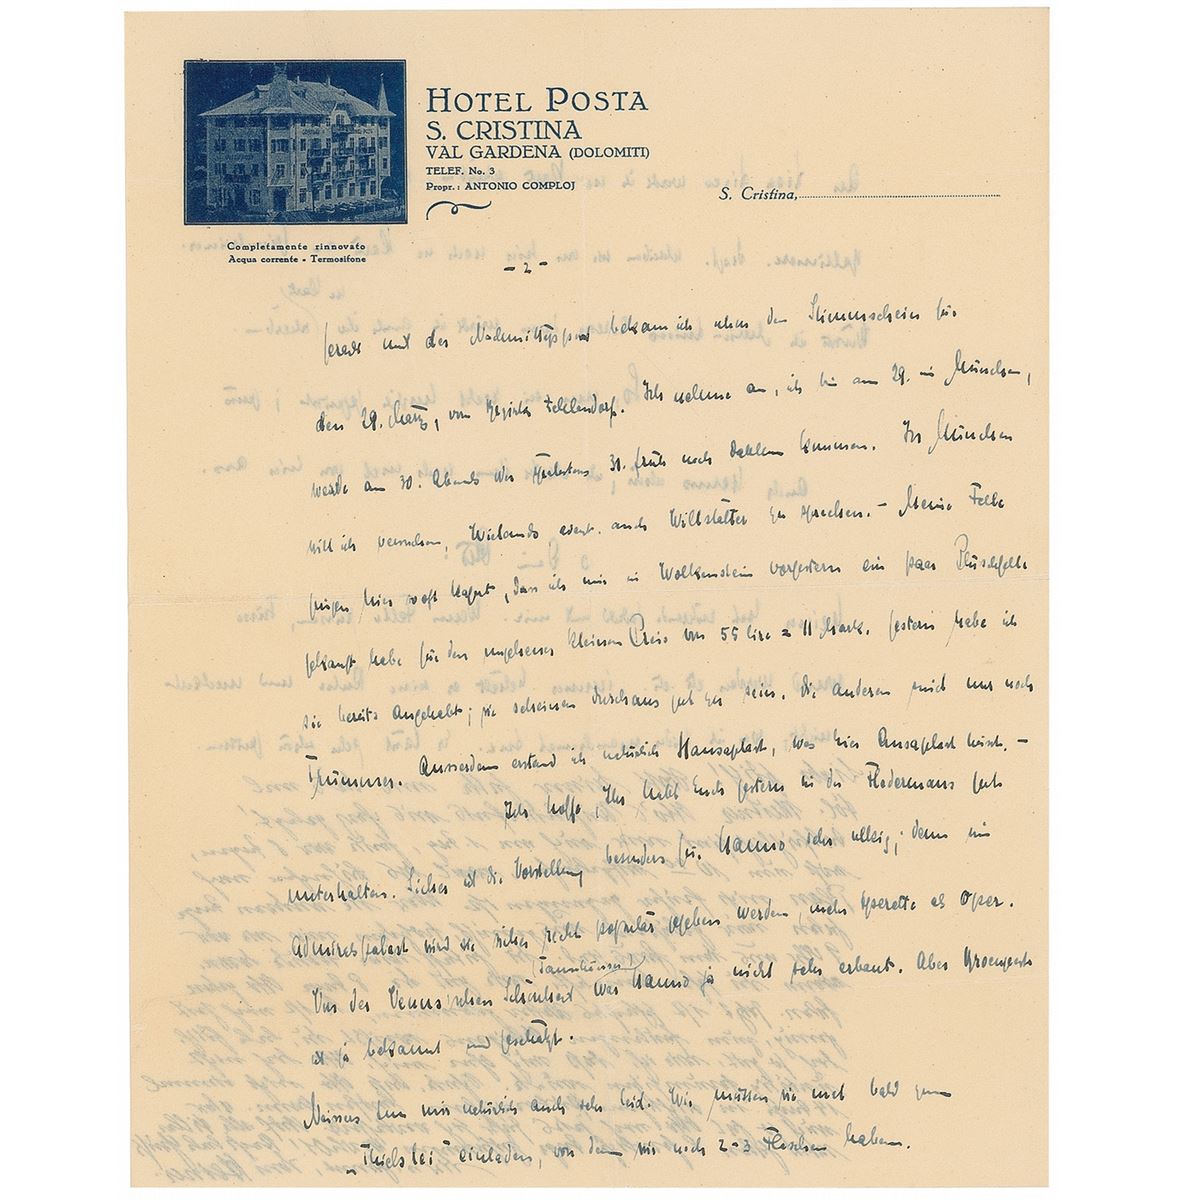 HOTEL POSTA
S. CRISTINA
VAL GARDENA (DOLOMITI)
TELEF. No. 3
Propr.: ANTONIO COMPLOJ
S. Cristina,
Completamente rinnovato
Acqua corrente - Termosifone
- 2 -
Gerade mit der Nachmittagspost bekam ich eben den Stimmschein für
den 29. März, vom Bezirk Zehlendorf. Ich nehme an, ich bin am 29. in München,
werde am 30. Abends oder spätestens 30. früh nach Dahlem kommen. In München
will ich versuchen, Wielands event. auch Willstätter zu sprechen. - Meine Felle
gingen hier so oft kaput, dass ich mir in Wolkenstein vorgestern ein paar Plüschfelle
gekauft habe für den ungeheuer kleinen Preis von 55 Lire = 11 Mark. Gestern habe ich
sie bereits angehabt; sie scheinen durchaus gut zu sein. Die anderen sind nur noch
Trümmer. Ausserdem erstand ich natürlich Hansaplast, was hier Ansaplast heisst. -
Ich hoffe, Ihr habt Euch gestern in der Fledermaus gut
unterhalten. Sicher ist die Vorstellung besonders für Hanno sehr ulkig; denn im
Admiralspalast wird sie sicher recht populär gegeben werden, mehr Operette als Oper.
Von der Venus'schen Schönheit (Tannhäuser) war Hanno ja nicht sehr erbaut. Aber
ist ja bekannt und geschätzt.
tun mir natürlich auch sehr leid. Wir müssen sie mal bald zum
einladen, von dem wir noch 2-3 Flaschen haben.